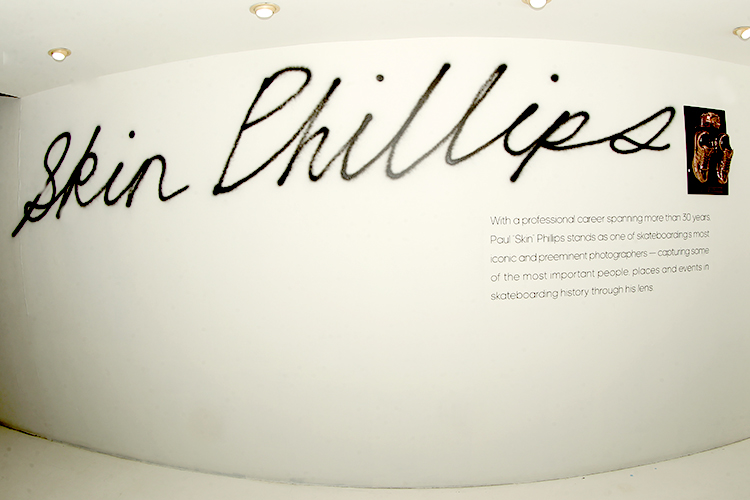 Skin Phillips
With a professional career spanning more than 30 years,
Paul 'Skin' Phillips stands as one of skateboarding's most
iconic and preeminent photographers — capturing some
of the most important people, places and events in
skateboarding history through his lens.